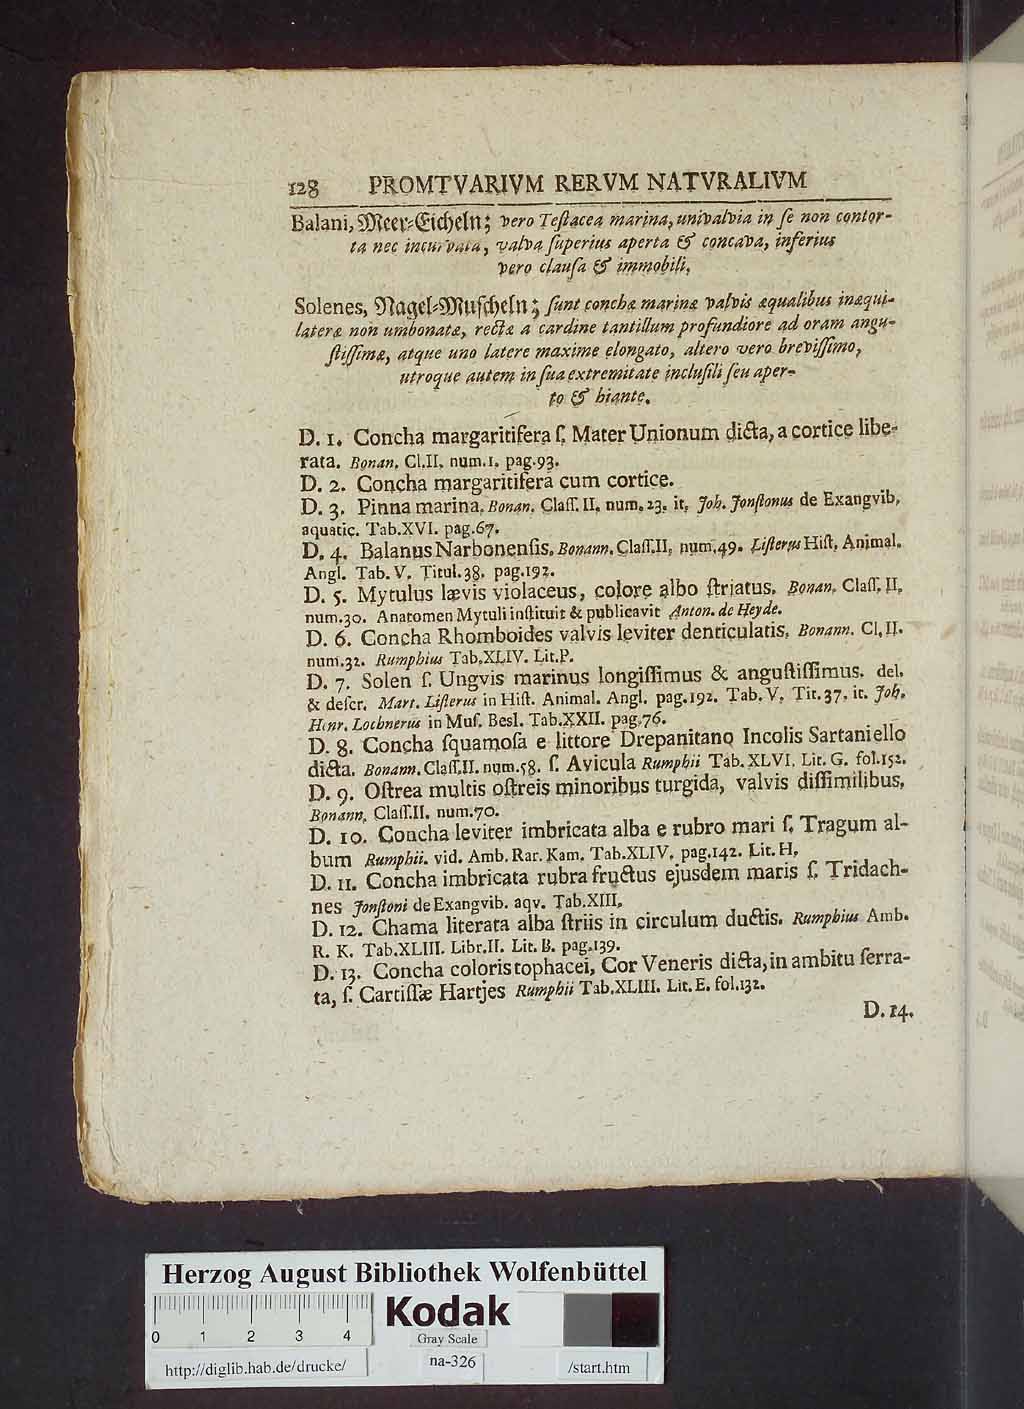 128 PROMTVARIVM RERVM NATVRALIVM
Balani, Meer-Eicheln; vero Teſtacea marina, univalvia in ſe non contor-
ta nec incurvata, valva ſuperius aperta & concava, inferius
vero clauſa & immobili.
Solenes, Nagel-Muſcheln; ſunt conchæ marinæ valvis æqualibus inæqui-
lateræ non umbonatæ, rectæ a cardine tantillum profundiore ad oram angu-
ſtiſſimæ, atque uno latere maxime elongato, altero vero breviſſimo,
utroque autem in ſua extremitate incluſili ſeu aper-
to & hiante.
D. 1. Concha margaritifera ſ. Mater Unionum dicta, a cortice libe-
rata. Bonan. Cl.II. num.1. pag.93.
D. 2. Concha margaritifera cum cortice.
D. 3. Pinna marina. Bonan. Claſſ. II. num.23. it. Joh. Jonſtonus de Exangvib.
aquatic. Tab.XVI. pag.67.
D. 4. Balanus Narbonenſis. Bonann. Claſſ.II. num.49. Liſterus Hiſt. Animal.
Angl. Tab. V. Titul.38. pag.192.
D. 5. Mytulus lævis violaceus, colore albo ſtriatus. Bonan. Claſſ. II.
num.30. Anatomen Mytuli inſtituit & publicavit Anton. de Heyde.
D. 6. Concha Rhomboides valvis leviter denticulatis. Bonann. Cl.II.
num.32. Rumphius Tab.XLIV. Lit.P.
D. 7. Solen ſ. Ungvis marinus longiſſimus & anguſtiſſimus. del.
& deſcr. Mart. Liſterus in Hiſt. Animal. Angl. pag.192. Tab. V. Tit.37. it. Joh.
Henr. Lochnerus in Muſ. Besl. Tab.XXII. pag.76.
D. 8. Concha ſquamoſa e littore Drepanitano Incolis Sartaniello
dicta. Bonann. Claſſ.II. num.58. ſ. Avicula Rumphii Tab. XLVI. Lit. G. fol.152.
D. 9. Oſtrea multis oſtreis minoribus turgida, valvis diſſimilibus.
Bonann. Claſſ.II. num.70.
D. 10. Concha leviter imbricata alba e rubro mari ſ. Tragum al-
bum Rumphii. vid. Amb. Rar. Kam. Tab.XLIV. pag.142. Lit. H.
D. 11. Concha imbricata rubra fructus ejusdem maris ſ. Tridach-
nes Jonſtoni de Exangvib. aqv. Tab.XIII.
D. 12. Chama literata alba ſtriis in circulum ductis. Rumphius Amb.
R. K. Tab.XLIII. Libr.II. Lit. B. pag.139.
D. 13. Concha coloris tophacei, Cor Veneris dicta, in ambitu ſerra-
ta, ſ. Cartiſſæ Hartjes Rumphii Tab.XLIII. Lit. E. fol.132.
D. 14.
Herzog August Bibliothek Wolfenbüttel
0 1 2 3 4
Kodak
Gray Scale
http://diglib.hab.de/drucke/ na-326 /start.htm